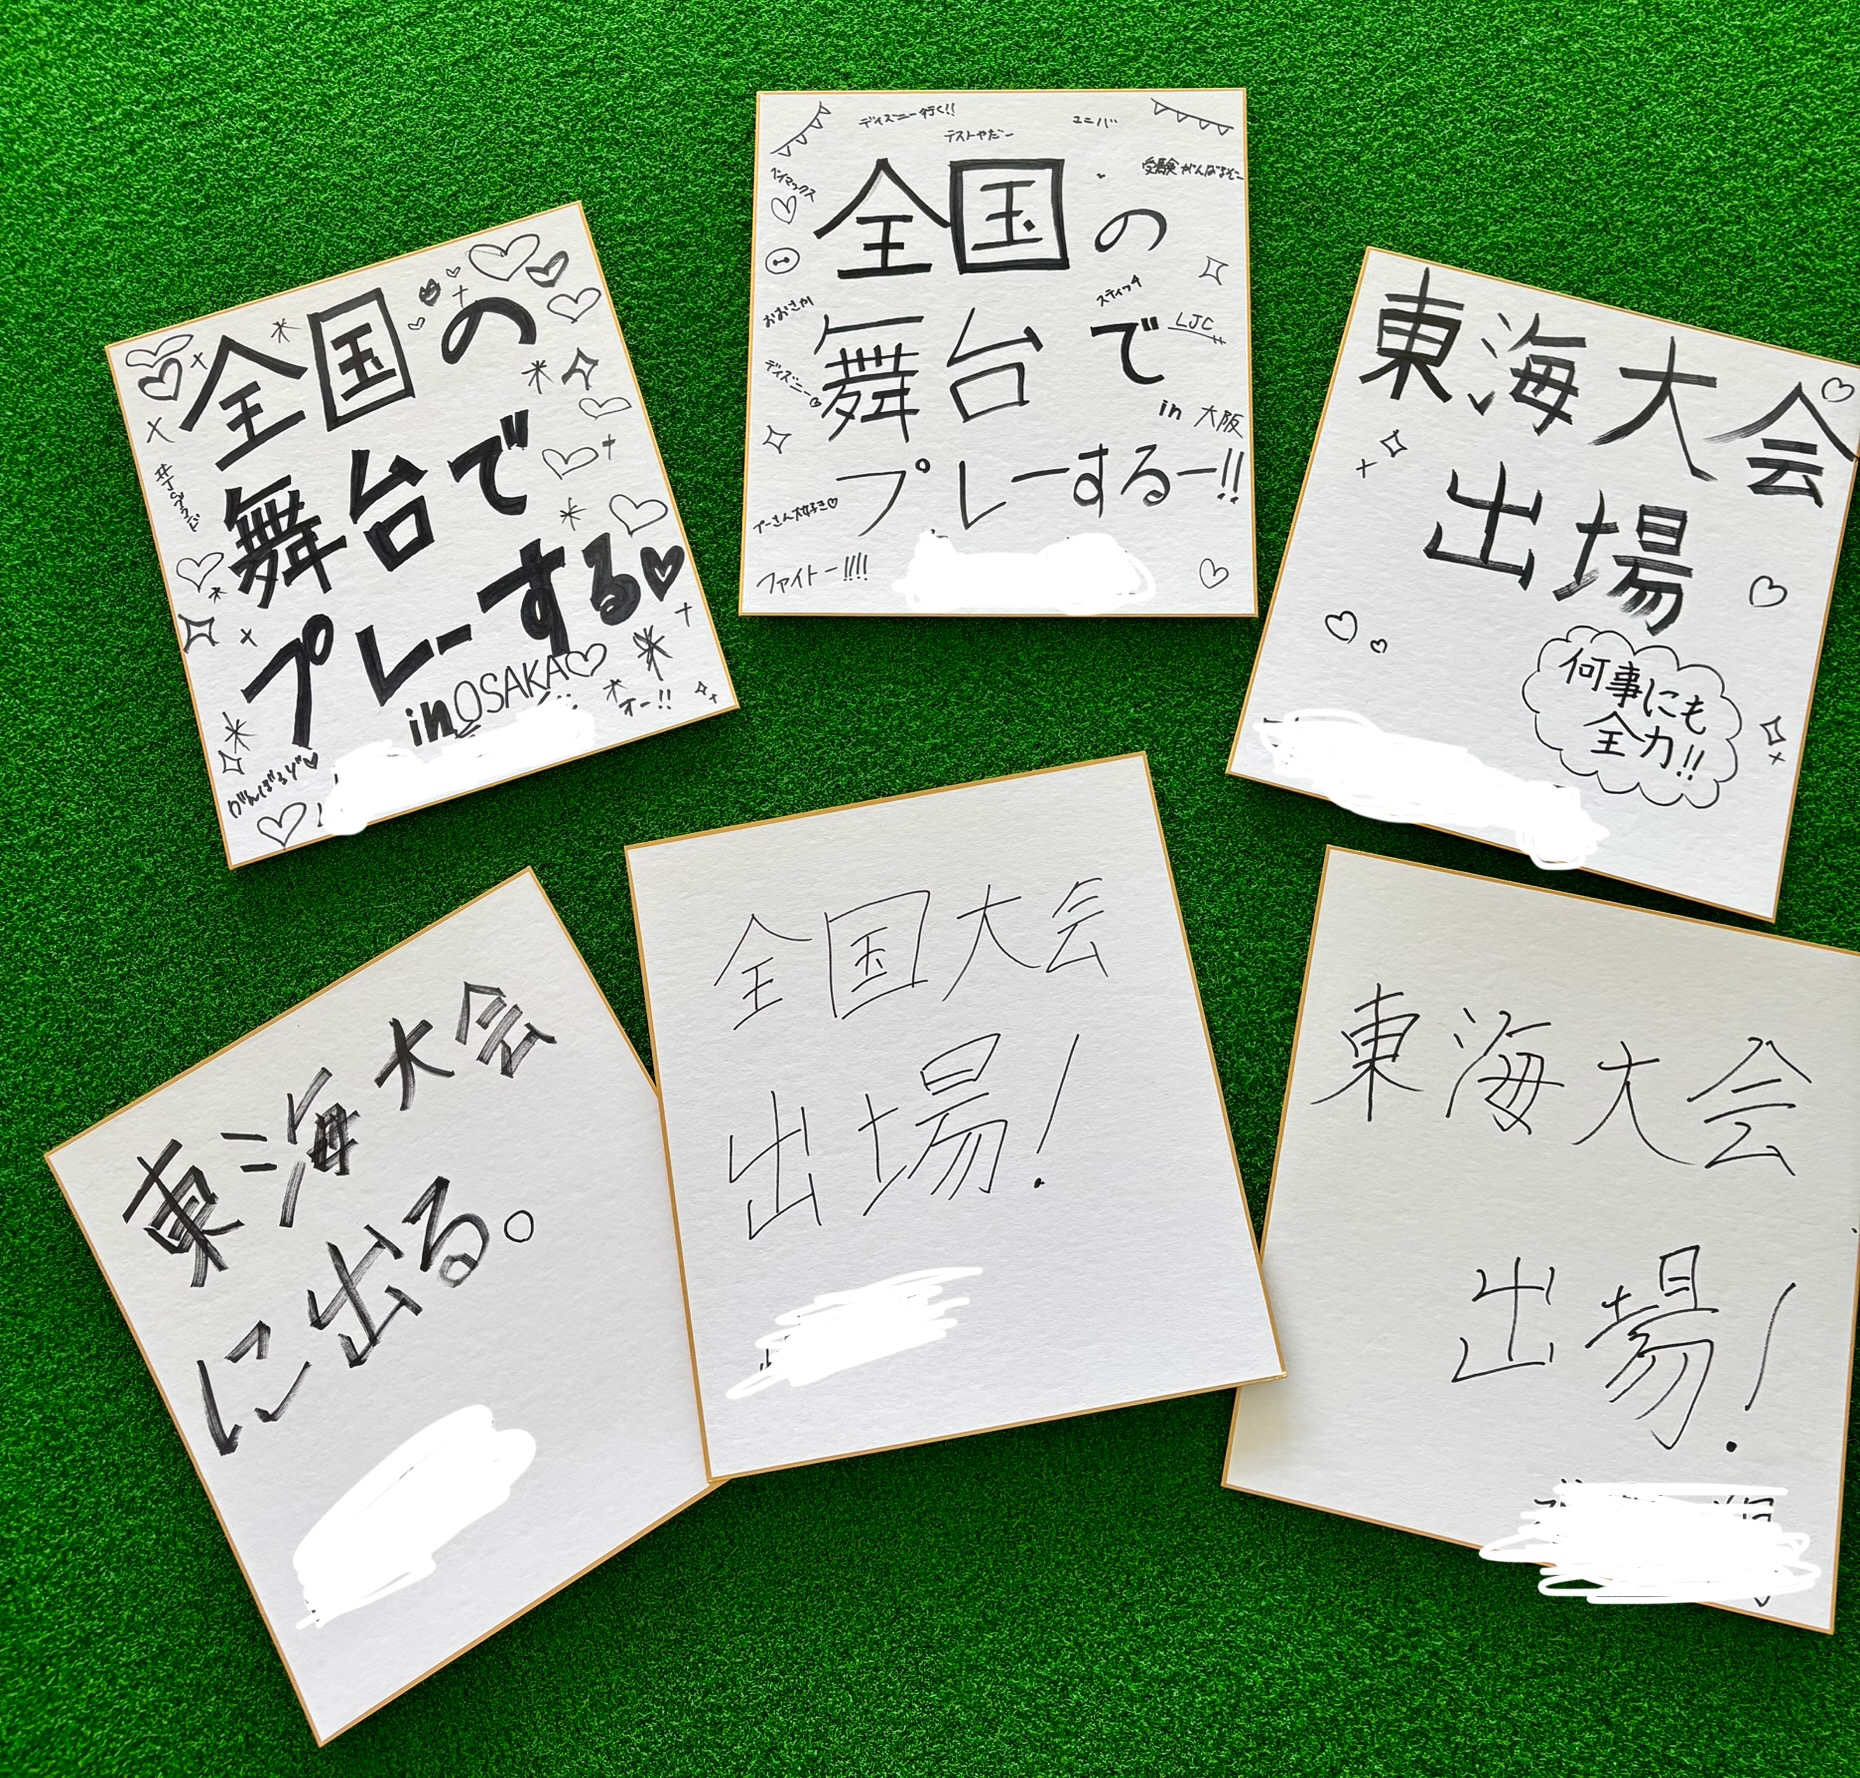 全国の
舞台で
プレーする♥
in OSAKA♡
オー!!
がんばるぞ♥
ディズニー行く!!
テストやだー
ユニバ
受験がんばるぞー
全国の
おおさか
スティッチ
舞台で
LJC
ディズニー
in 大阪
プレーするー!!
プーさん大好き♡
ファイトー!!!!
東海大会
出場
何事にも
全力!!
東海大会
に出る。
全国大会
出場!
東海大会
出場!